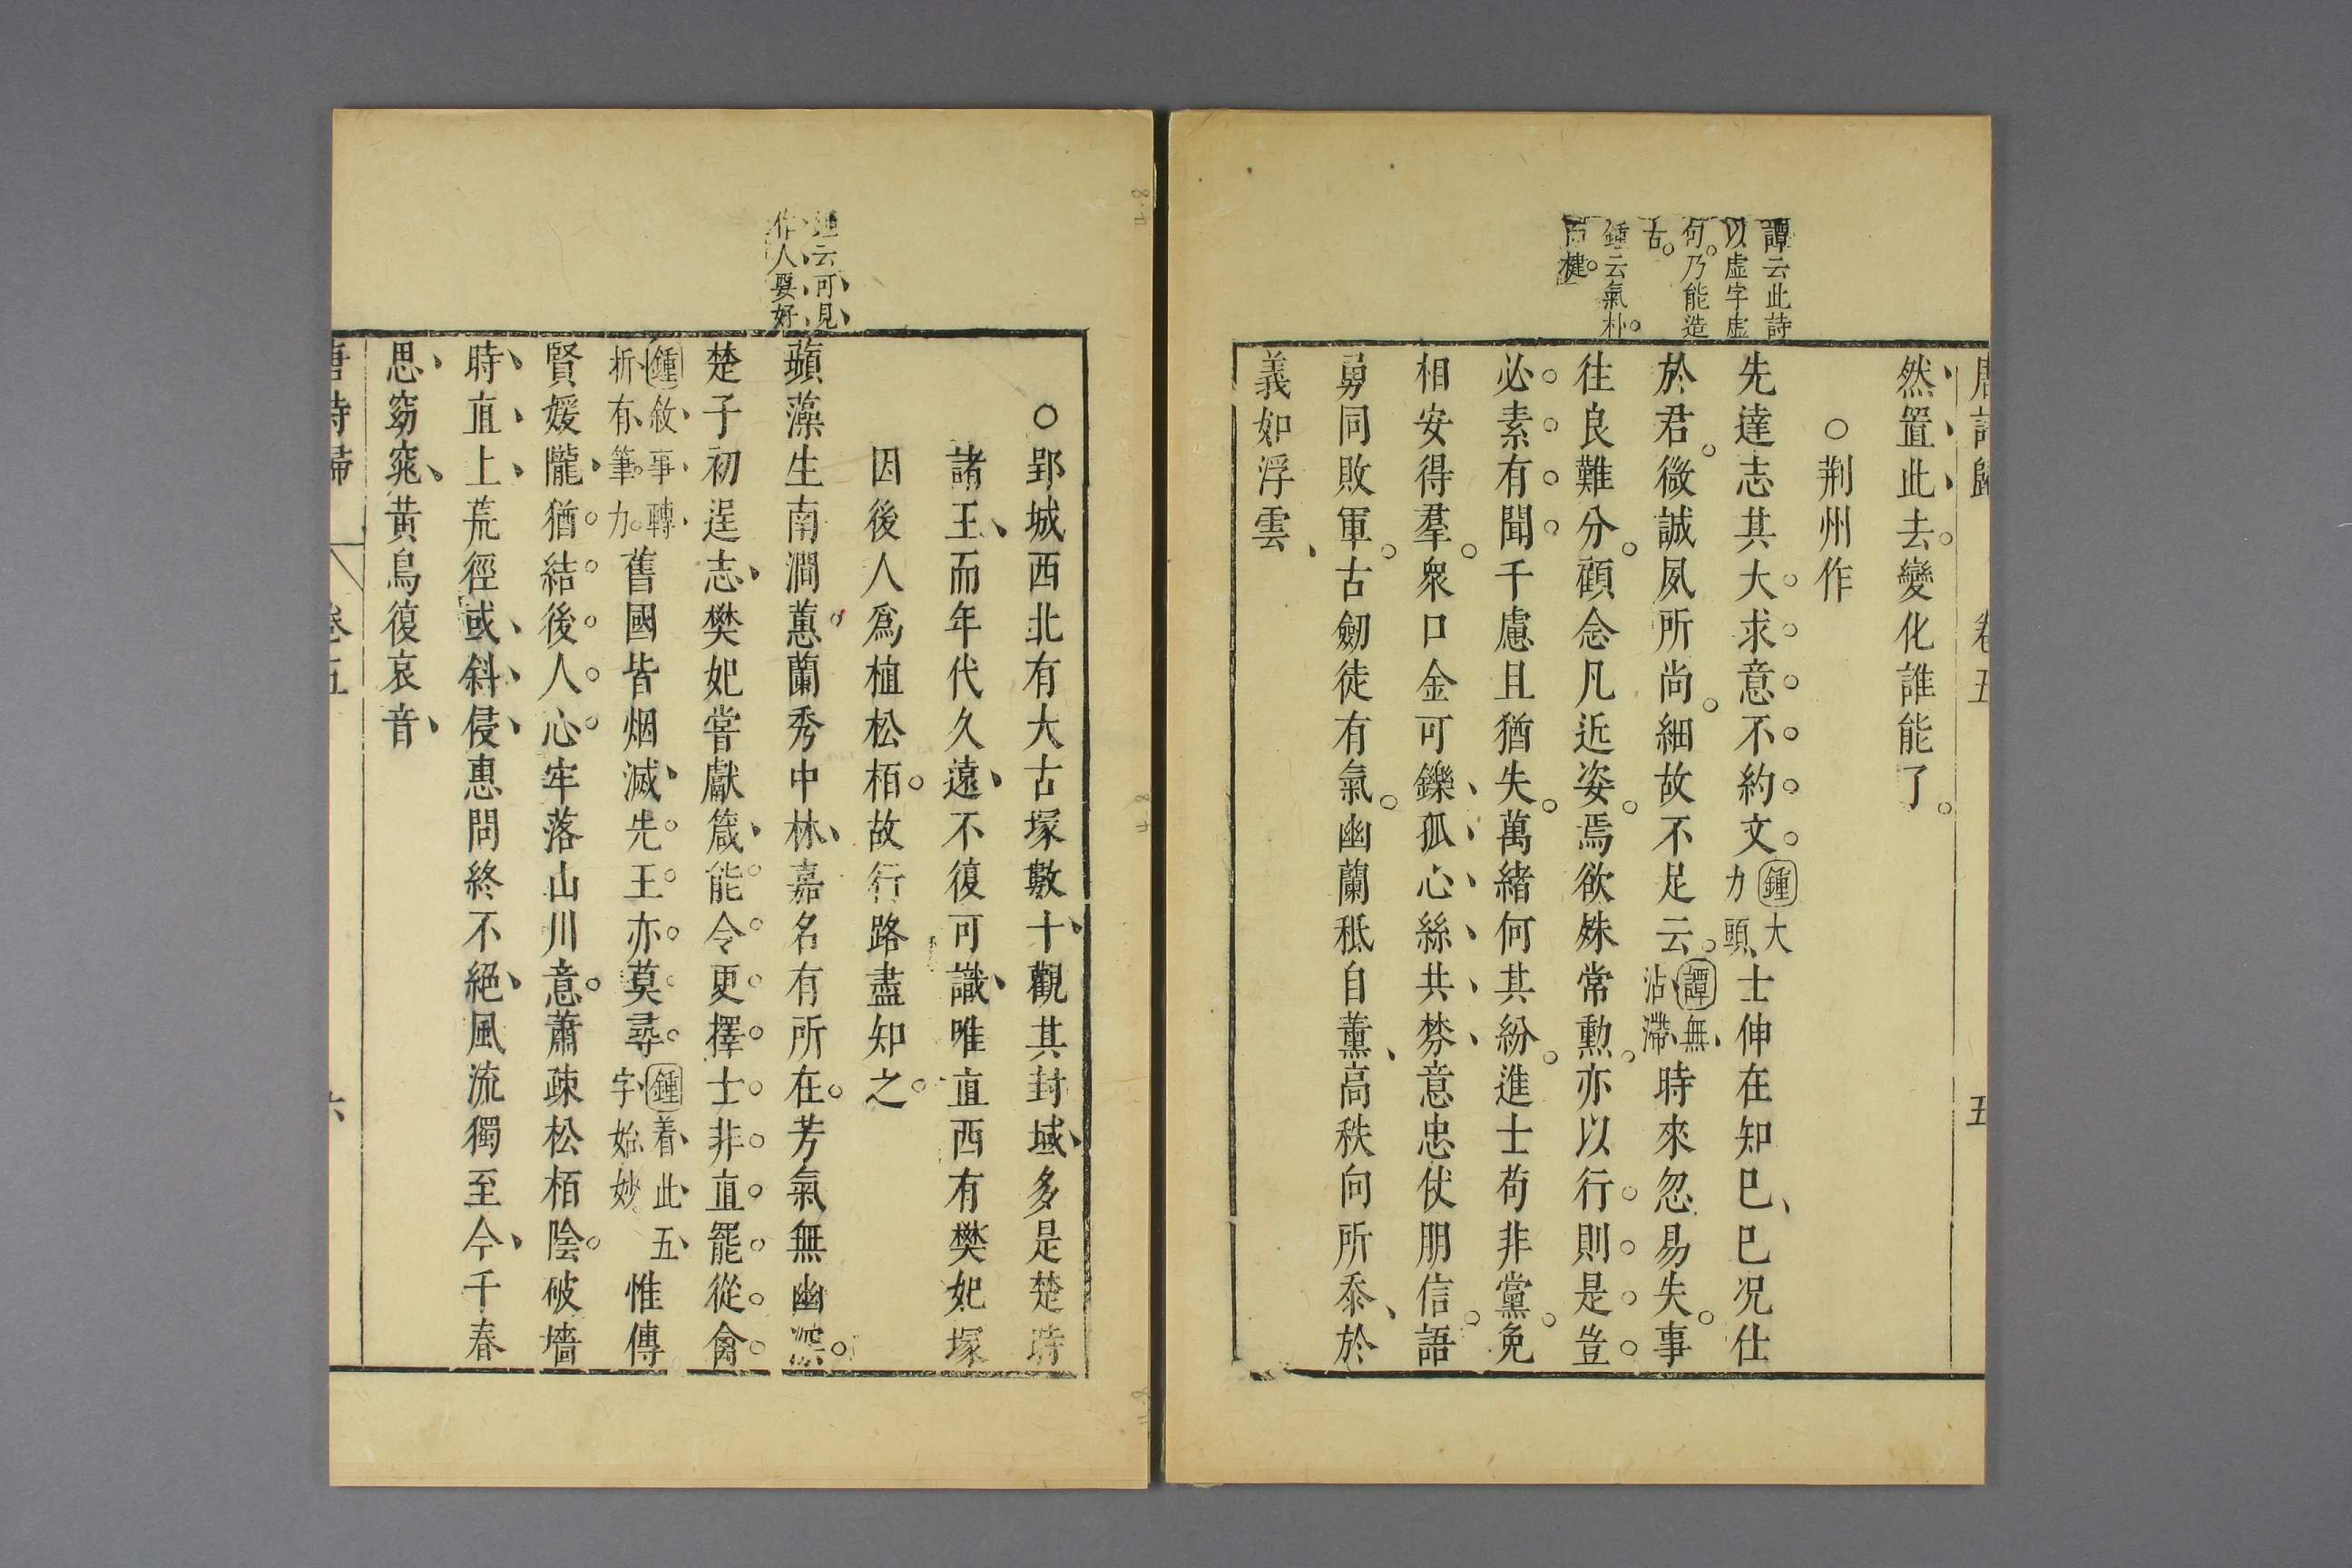 唐詩歸　卷五　五
譚云此詩
以虛字虛
句乃能造
古
鍾云氣朴
而榩
然置此去變化誰能了
○荆州作
先達志其大求意不約文鍾大力頭士伸在知巳巳况仕
於君微誠夙所尚細故不足云譚無沾滯時來忽易失事
往良難分顧念凡近姿焉欲殊常勲亦以行則是豈
必素有聞千慮且猶失萬緒何其紛進士苟非黨免
相安得羣衆口金可鑠孤心絲共棼意忠仗朋信語
勇同敗軍古劒徒有氣幽蘭秪自薰高秩向所忝於
義如浮雲
云可見
作人要好
○郢城西北有大古塚數十觀其封域多是楚時
諸王而年代久遠不復可識唯直西有樊妃塚
因後人爲植松栢故行路盡知之
蘋藻生南澗蕙蘭秀中林嘉名有所在芳氣無幽深
楚子初逞志樊妃嘗獻箴能令更擇士非直罷從禽
鍾敘事轉折有筆力舊國皆烟滅先王亦莫尋鍾着此五字始妙惟傳
賢媛隴猶結後人心牢落山川意蕭疎松栢陰破墻
時直上荒徑或斜侵惠問終不絕風流獨至今千春
思窈窕黃鳥復哀音
唐詩歸　卷五　六